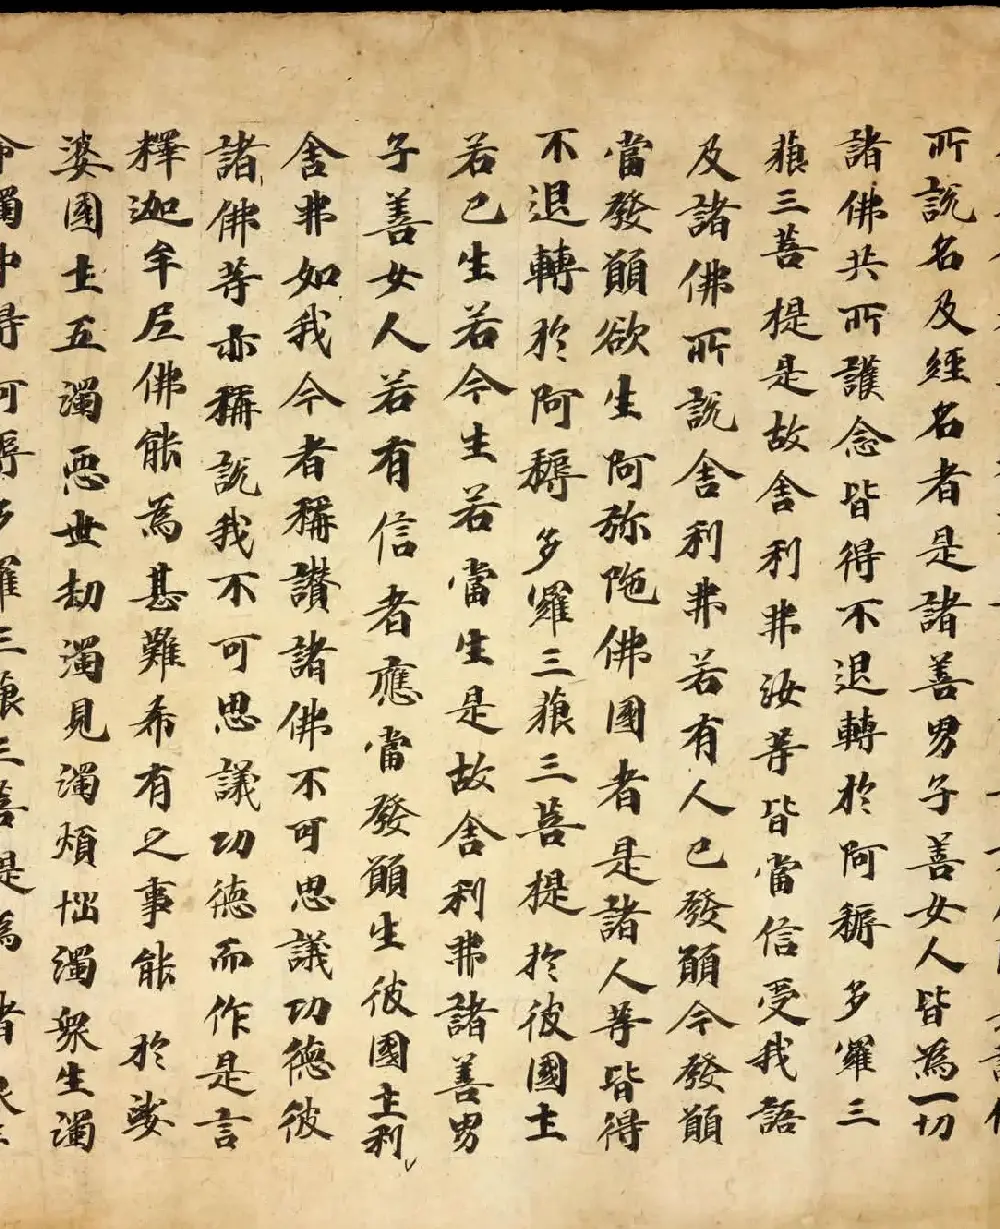 所說名及經名者是諸善男子善女人皆為一切
諸佛共所護念皆得不退轉於阿耨多羅三
藐三菩提是故舍利弗汝等皆當信受我語
及諸佛所說舍利弗若有人已發願今發願
當發願欲生阿弥陁佛國者是諸人等皆得
不退轉於阿耨多羅三藐三菩提於彼國土
若已生若今生若當生是故舍利弗諸善男
子善女人若有信者應當發願生彼國土利
舍弗如我今者稱讚諸佛不可思議功德彼
諸佛等亦稱說我不可思議功德而作是言
釋迦牟尼佛能為甚難希有之事能於娑
婆國土五濁惡世劫濁見濁煩惱濁衆生濁
命濁中得阿耨多羅三藐三菩提為諸衆生